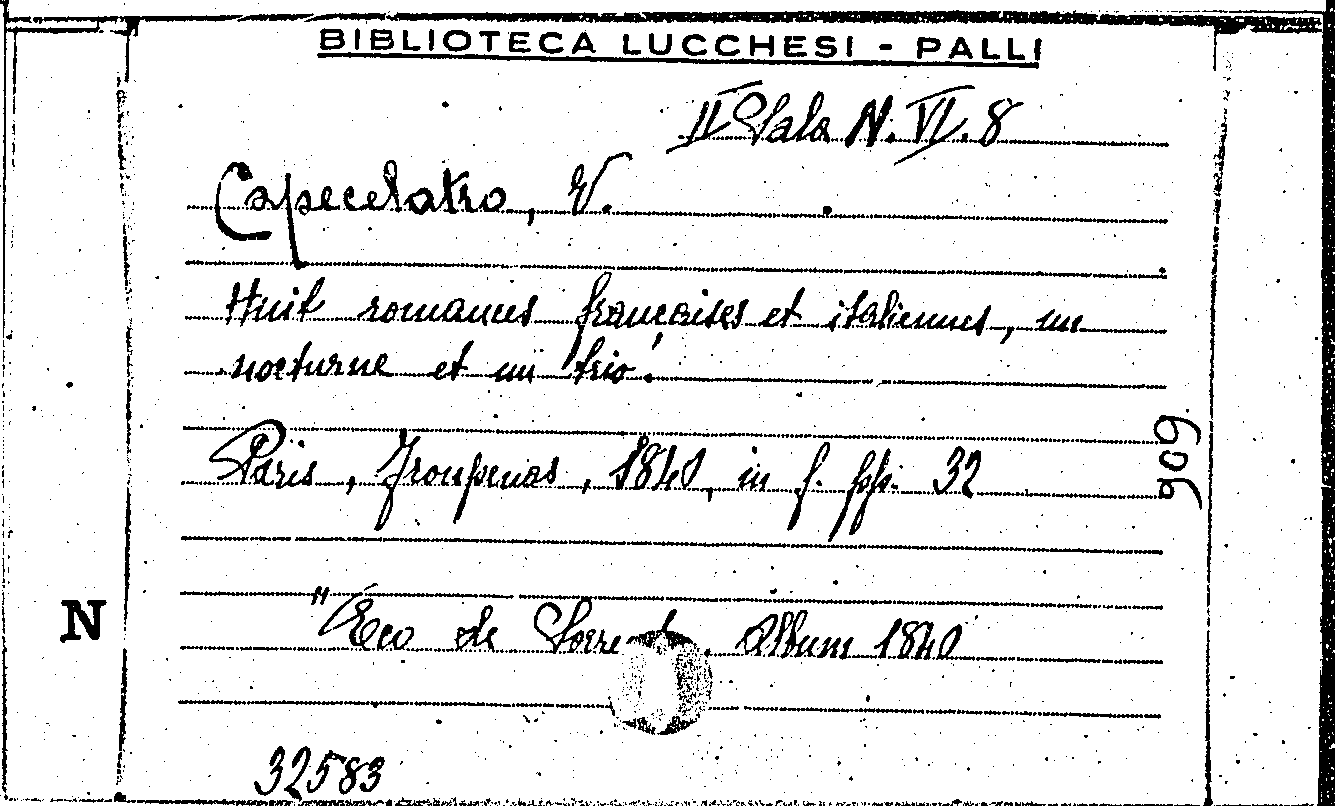 BIBLIOTECA LUCCHESI - PALLI
II Sala N. VI. 8
Capecelatro, V.
Huit romances françaises et italiennes, un
nocturne et un trio.
Paris, Troupenas, 1840, in f. pp. 32
909
N
"Eco de Album 1840
32583